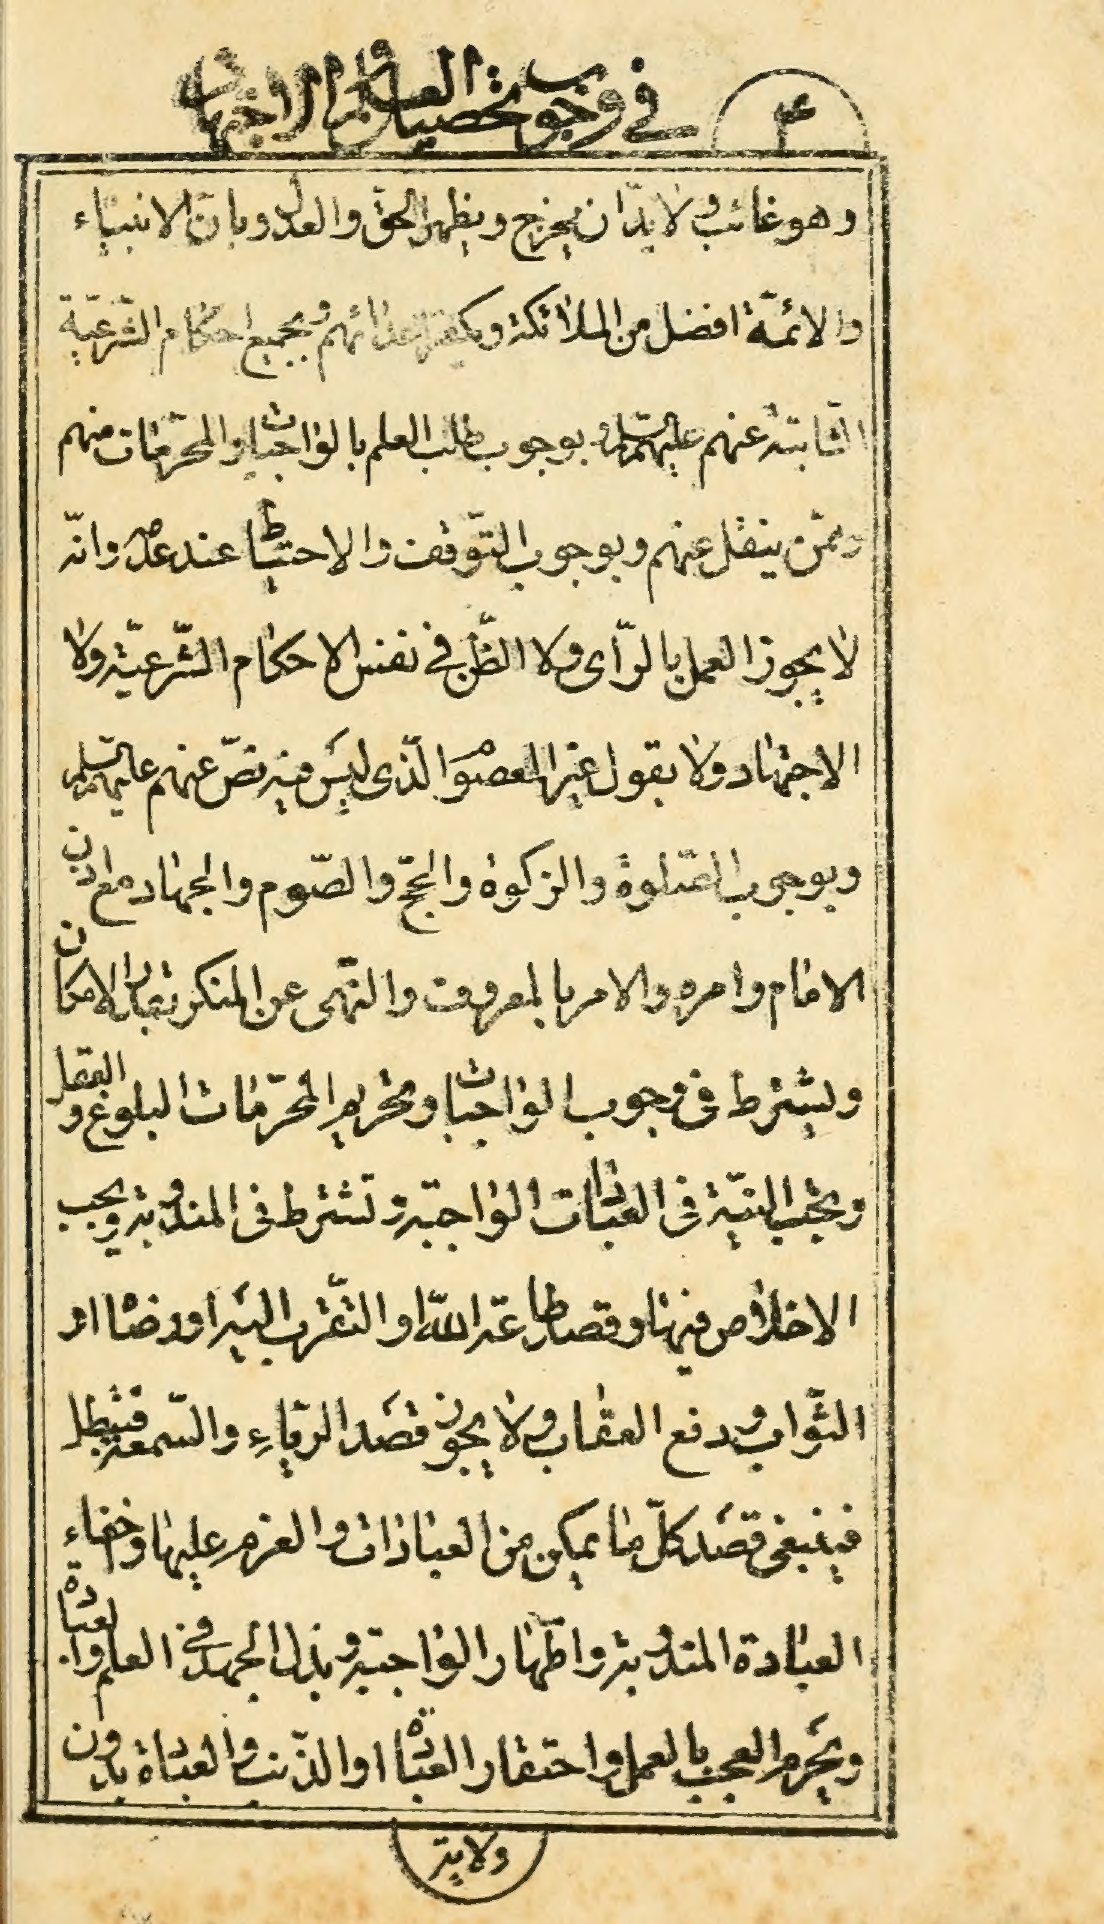 ٤
في وجوب تحصيل العلم بالاجتهاد
وهو غائب ولا بدّ ان يخرج ويظهر الحق والعدل وبانّ الانبياء
والائمّة افضل من الملائكة وبكفر اعدائهم وبجميع احكام الشّرعيّة
الثّابتة عنهم عليهم السلم وبوجوب طلب العلم بالواجبات والمحرّمات منهم
وممّن ينقل عنهم وبوجوب التّوقف والاحتياط عند عدمه وانّه
لا يجوز العمل بالرّأى ولا الظّن في نفس الاحكام الشّرعيّة ولا
الاجتهاد ولا بقول غير المعصوم الّذى ليس فيه نصّ عنهم عليهم السلم
وبوجوب الصّلوة والزكوة والحجّ والصّوم والجهاد مع اذن
الامام وامره والامر بالمعروف والنّهى عن المنكر بقدر الامكان
ويشترط فى وجوب الواجبات وتحريم المحرّمات البلوغ والعقل
وتجب النيّة فى العبادات الواجبة وتشترط فى المندوبة ويجب
الاخلاص فيها وقصد طاعة الله او التّقرب اليه او رضاه او
الثّواب ودفع العقاب ولا يجوز قصد الرّياء والسّمعة فتبطل
فينبغى قصد كلّ ما يمكن من العبادات والعزم عليها واخفاء
العبادة المندوبة واظهار الواجبة وبذل الجهد في العلم والعبادة
ويحرم العجب بالعمل واحتقار العبادة او الذّنب والعبادة بدون
ولاية